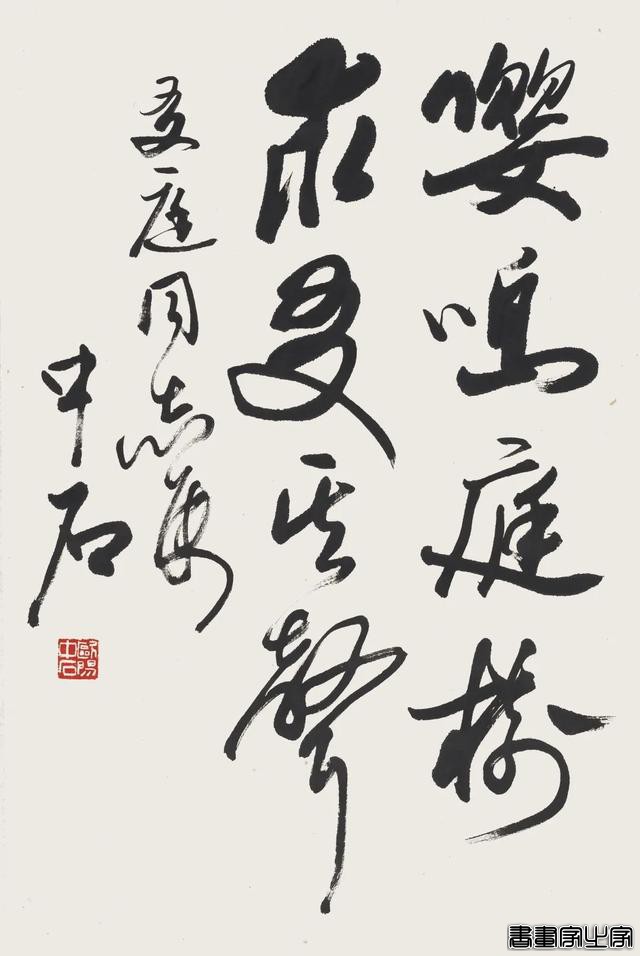 嚶鳴庭樹
求友其聲
友庭同志屬
中石
歐陽中石
書畫家之家